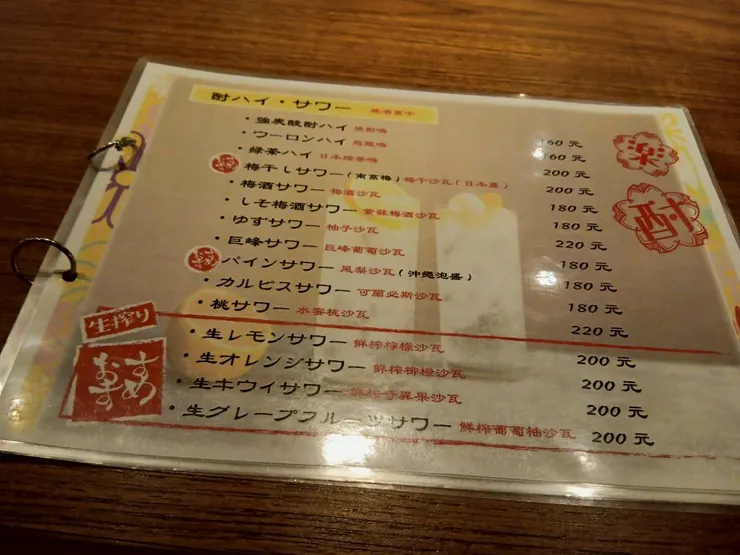 酎ハイ・サワー 燒酒蘇打
・強炭酸酎ハイ 燒酎嗨 160 元
・ウーロンハイ 烏龍嗨 160 元
・緑茶ハイ 日本綠茶嗨 200 元
梅干しサワー(南高梅) 梅干沙瓦(日本産) 200 元
・梅酒サワー 梅酒沙瓦 180 元
・しそ梅酒サワー 紫蘇梅酒沙瓦 180 元
・ゆずサワー 柚子沙瓦 220 元
・巨峰サワー 巨峰葡萄沙瓦 180 元
パインサワー 鳳梨沙瓦(沖縄泡盛) 180 元
・カルピスサワー 可爾必斯沙瓦 180 元
・桃サワー 水蜜桃沙瓦 220 元
・生レモンサワー 鮮榨檸檬沙瓦 200 元
・生オレンジサワー 鮮榨柳橙沙瓦 200 元
・生キウイサワー 鮮榨奇異果沙瓦 200 元
・生グレープフルーツサワー 鮮榨葡萄柚沙瓦 200 元
生搾り
おすすめ
楽
酎